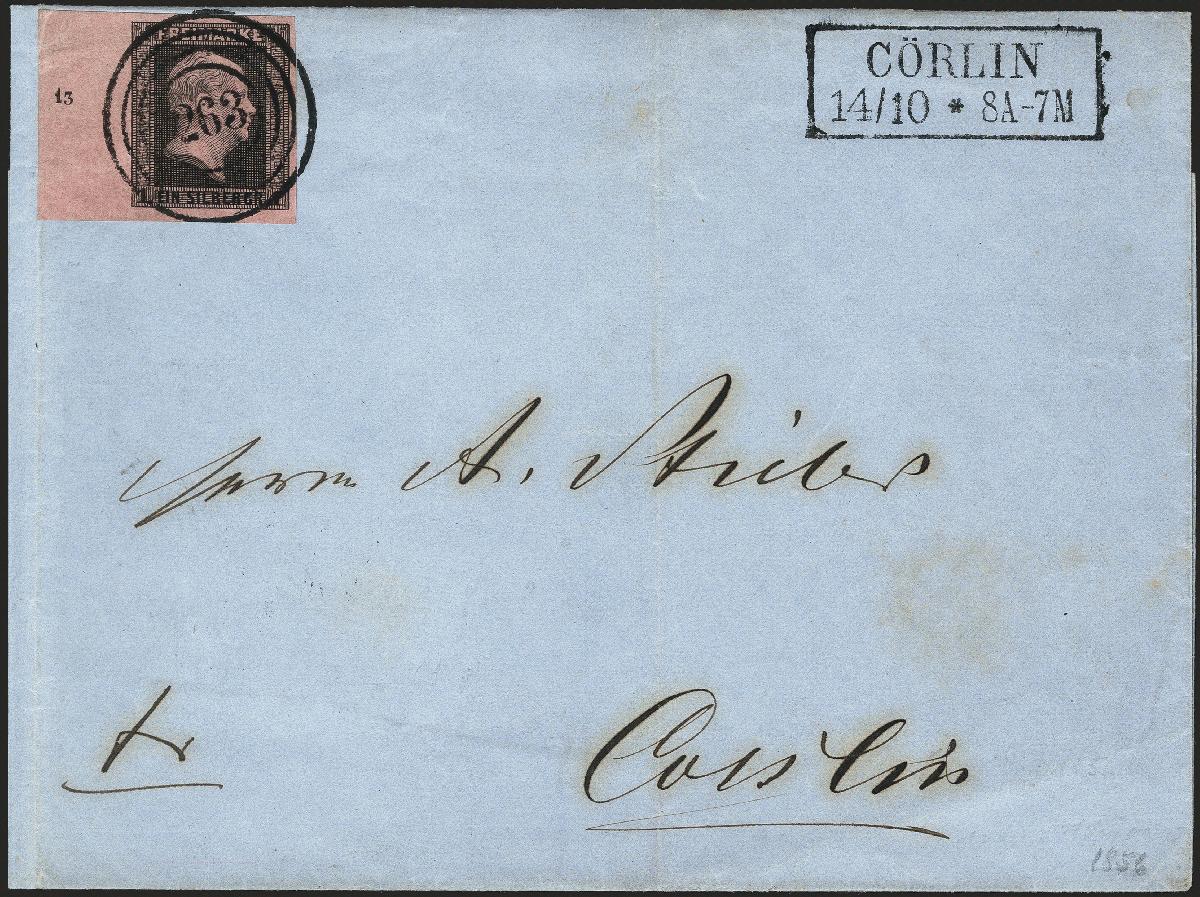 FREIMARKE
13
263
1 EIN SILBERGR.
CÖRLIN
14/10 * 8A-7M
Herrn A.
fr
Coeslin
1856